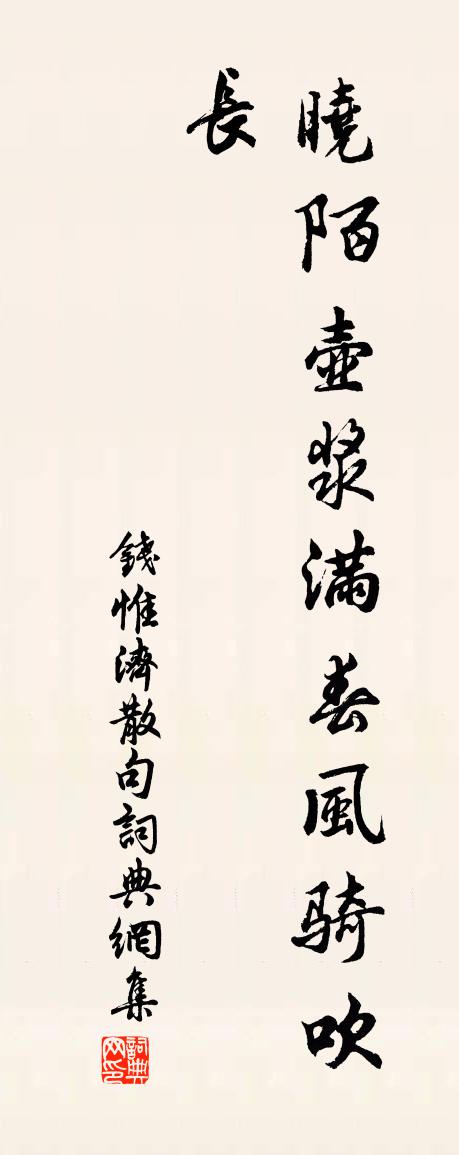 曉陌壺漿滿春風騎吹
長
錢惟濟散句詞典網集
詞典网印